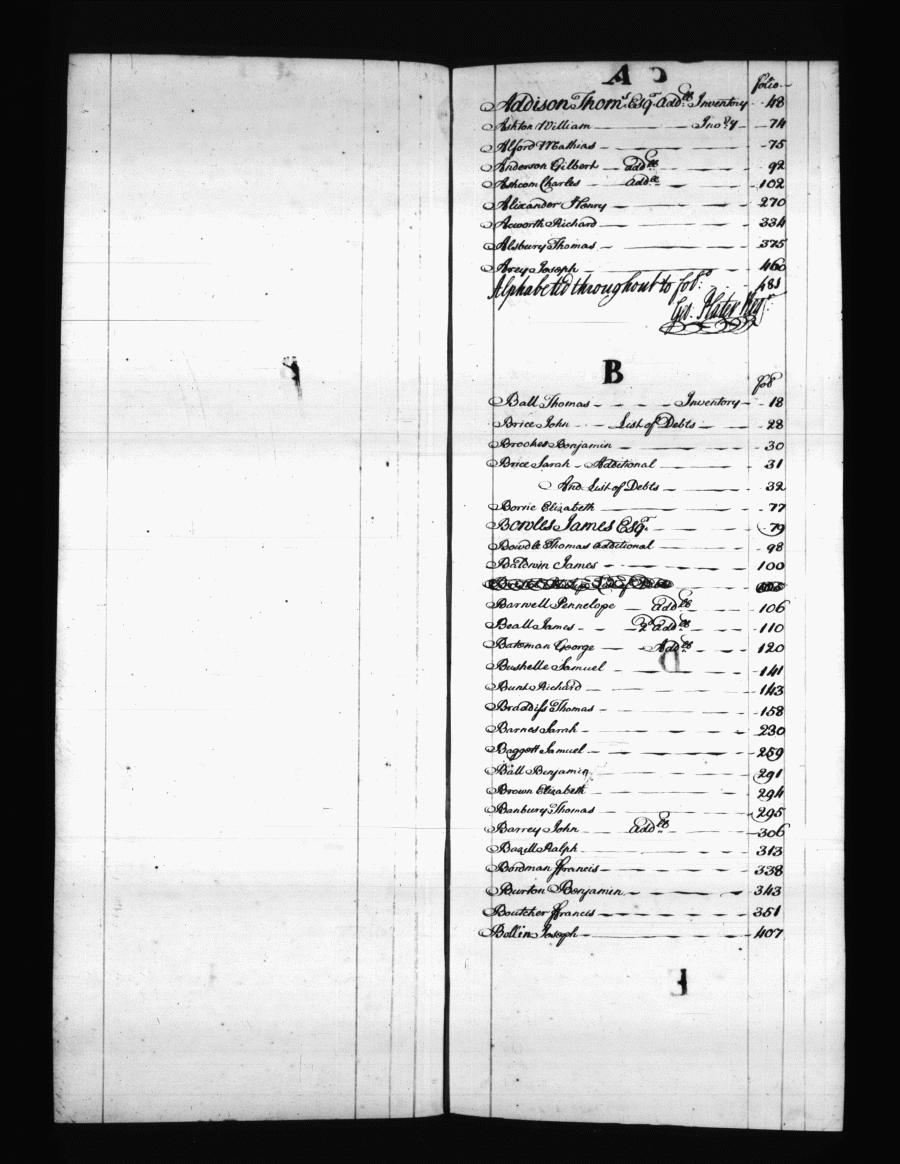 A
folio
Addison Thoms. Esqr. addll. Inventory 48
Ashton William Invory 74
Alford Mathias 75
Anderson Gilbert addll 92
Ashcom Charles addll 102
Alixander Henry 270
Acworth Richard 334
Alsbury Thomas 375
Arey Joseph 460
Alphabeted throughout to folo. 481
Geo. Plater Regr.
B
folo
Ball Thomas Inventory 18
Brice John List of Debts 28
Brookes Benjamin 30
Brice Sarah Additional 31
And List of Debts 32
Borrie Elizabeth 77
Bowles James Esqr. 79
Bowdle Thomas additional 98
Baldwin James 100
Barwell Pennelope addll 106
Beall James 2d addll 110
Bateman George Addll 120
Bushelle Samuel 141
Bunt Richard 143
Braddiss Thomas 158
Barnes Sarah 230
Baggott Samuel 259
Ball Benjamin 291
Brown Elizabeth 294
Banbury Thomas 295
Barrey John addll 306
Bazell Ralph 313
Bordman ffrancis 338
Burton Benjamin 343
Boutcher ffrancis 351
Bollin Joseph 407